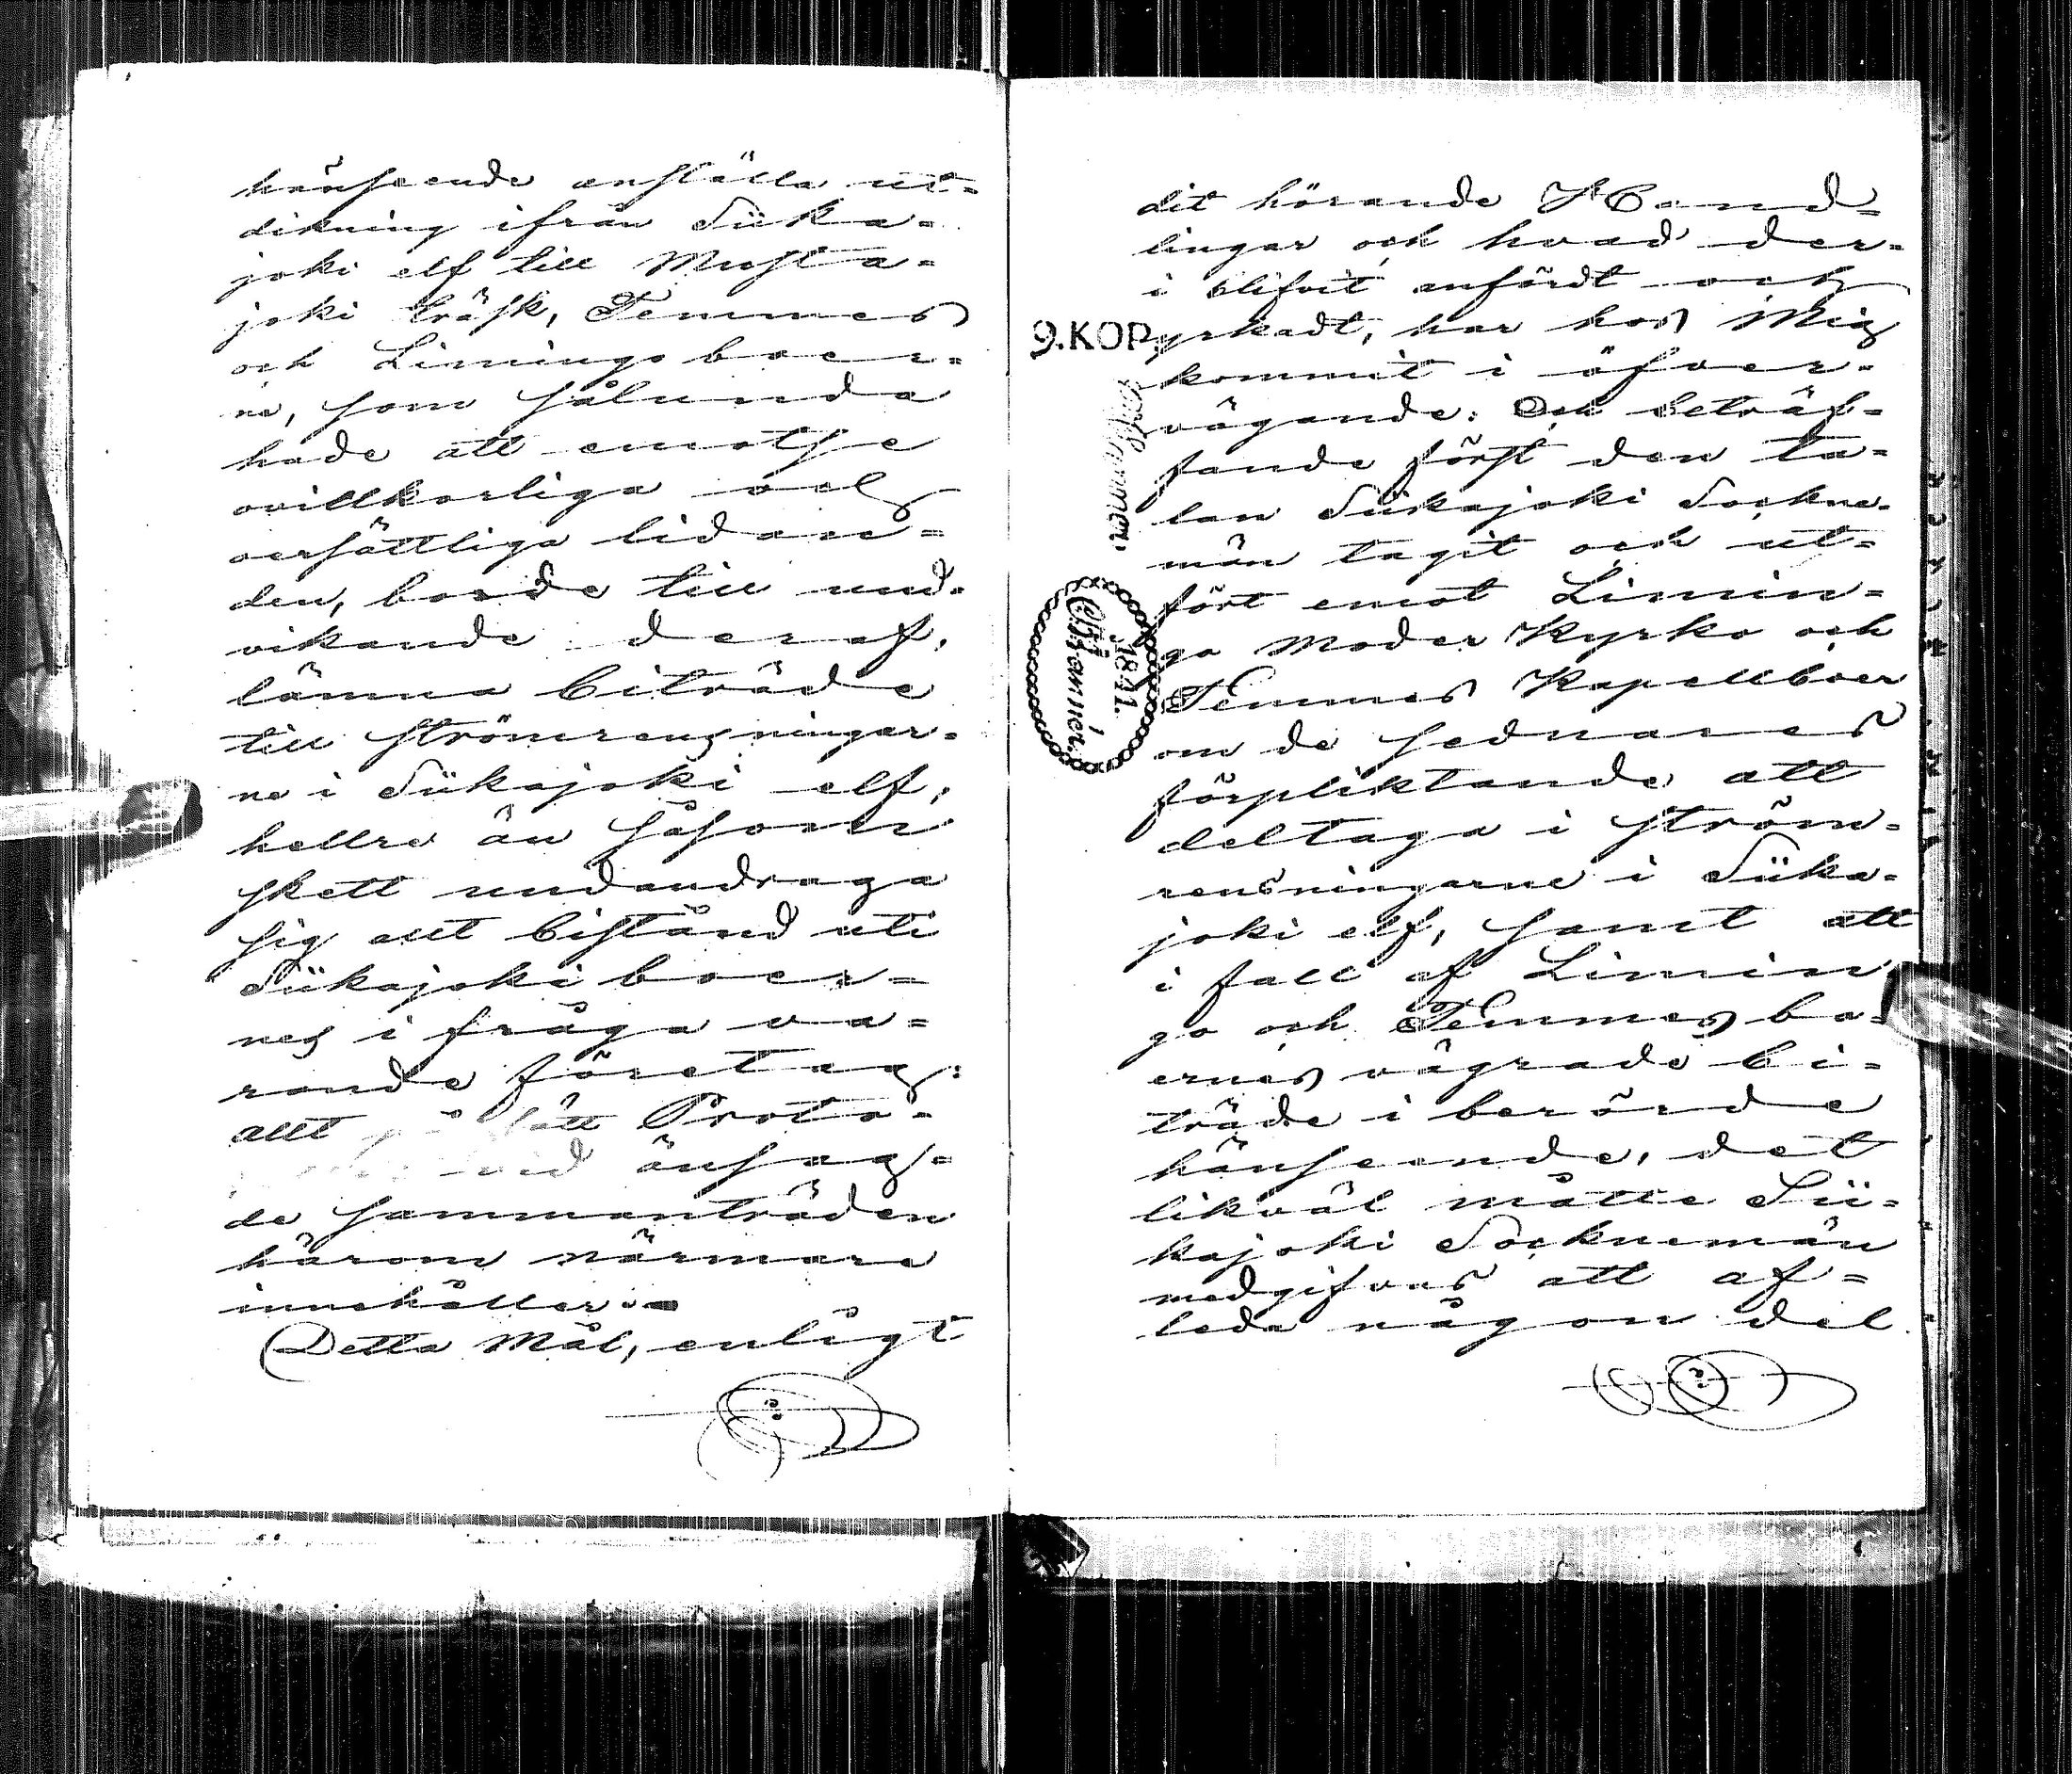 hänseende anställa ut-
dikning ifrån Siika-
joki elf till Musta-
joki träsk, Temmes
och Limingo boer-
ne, som sålunda
hade att emotse
ovillkorliga och
oersättliga lidan-
den, borde till und-
vikande deraf,
lämna biträde
till strömrensningar-
ne i Siikajoki elf,
hellre än såsom
skett undandraga
sig allt bistånd uti
Siikajoki boer-
nes i fråga va-
rande företag:
allt Proto-
vid änsag-
de sammanträden
härom närmare
innehåller.
Detta Mål, enligt
dit hörande Hand-
lingar och hvad der-
i blifvit anfördt och
yrkadt, har hos Mig
kommit i öfver-
vägande: Och beträf-
fande först den ta-
lan Siikajoki Sockne-
män tagit och ut-
fört emot Limin-
go Moder Kyrko och
Temmes Kapellboer
om de sednares
förpliktande att
deltaga i ström-
rensningarne i Siika-
joki elf, samt att
i fall af Limin
go och Temmes bo-
ernes vägrade bi-
träde i berörde
hänseende, det
likväl måtte Sii-
kajoki Socknemän
medgifvas att af-
leda någon del
9.KOP.
1841.